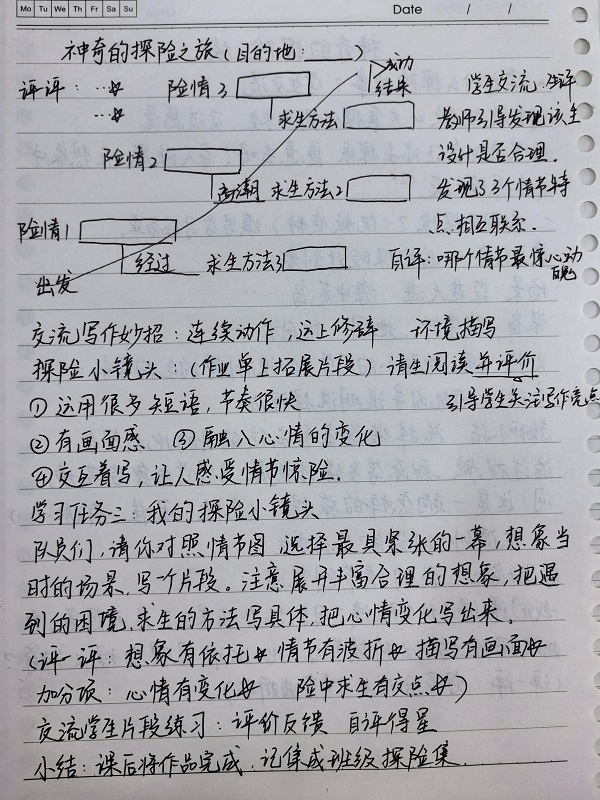 Mo Tu We Th Fr Sa Su
Date / /
神奇的探险之旅（目的地：____）
成功
评评：…☆ 险情3 结束 学生交流，生评
…☆ 求生方法 教师引导发现该生
险情2 设计是否合理．
高潮 求生方法2 发现了3个情节特
险情1 点相互联系．
经过 求生方法3 自评：哪个情节最惊心动
出发 魄
交流写作妙招：连续动作，这上修辞 环境描写
探险小镜头：（作业单上拓展片段）请生阅读并评价
①运用很多短语，节奏很快 引导学生关注写作亮点
②有画面感 ③融入心情的变化
④交互着写，让人感受情节惊险．
学习任务三：我的探险小镜头
队员们，请你对照情节图，选择最具紧张的一幕，想象当
时的场景，写一个片段。注意展开丰富合理的想象，把遇
到的困境，求生的方法写具体，把心情变化写出来。
（评一评：想象有依托☆ 情节有波折☆ 描写有画面☆
加分项：心情有变化☆ 险中求生有交点☆）
交流学生片段练习：评价反馈 自评得星
小结：课后将作品完成，记集成班级探险集．